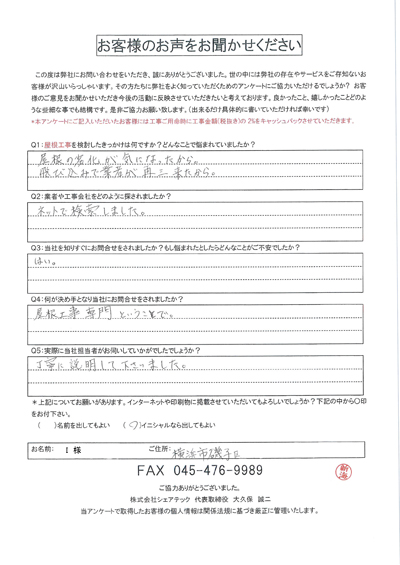 お客様のお声をお聞かせください
この度は弊社にお問い合わせをいただき、誠にありがとうございました。世の中には弊社の存在やサービスをご存知ないお
客様が沢山いらっしゃいます。その方たちに弊社をよく知っていただくためのアンケートにご協力いただけるでしょうか? お客
様のご意見をお聞かせいただき今後の活動に反映させていただきたいと考えております。良かったこと、嬉しかったことどのよ
うな些細な事でも結構です。是非ご協力お願い致します。(出来るだけ具体的に書いていただければ幸いです)
*本アンケートにご記入いただいたお客様には工事ご用命時に工事金額(税抜き)の2%をキャッシュバックさせていただきます。
Q1:屋根工事を検討したきっかけは何ですか?どんなことで悩まれていましたか?
屋根の劣化が気になったから。
飛び込みで業者が再三来たから。
Q2:業者や工事会社をどのように探されましたか?
ネットで検索しました。
Q3:当社を知りすぐにお問合せをされましたか?もし悩まれたとしたらどんなことがご不安でしたか?
はい。
Q4:何が決め手となり当社にお問合せをされましたか?
屋根工事専門ということで。
Q5:実際に当社担当者がお伺いしていかがでしたでしょうか?
丁寧に説明して下さいました。
*上記についてお願いがあります。インターネットや印刷物に掲載させていただいてもよろしいでしょうか?下記の中から〇印
をお付下さい。
( )名前を出してもよい (〇)イニシャルなら出してもよい
お名前: I 様 ご住所: 横浜市磯子区
FAX 045-476-9989
ご協力ありがとうございました。
株式会社シェアテック 代表取締役 大久保 誠二
当アンケートで取得したお客様の個人情報は関係法規に基づき厳正に管理いたします。